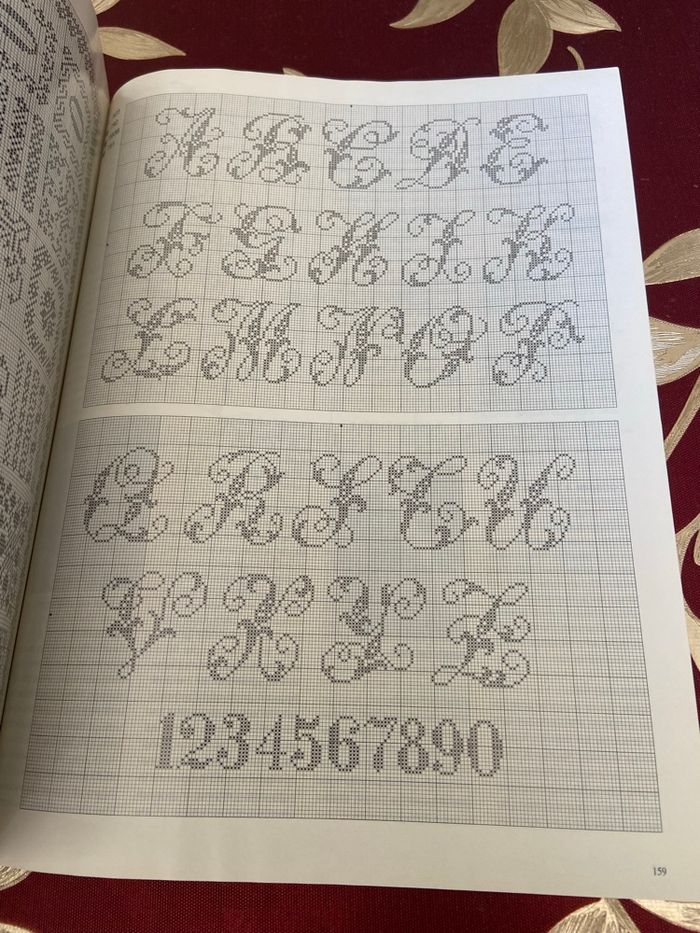 A B C D E
F G H J K
L M N O P
Q R S T U
V X Y Z
1234567890
159